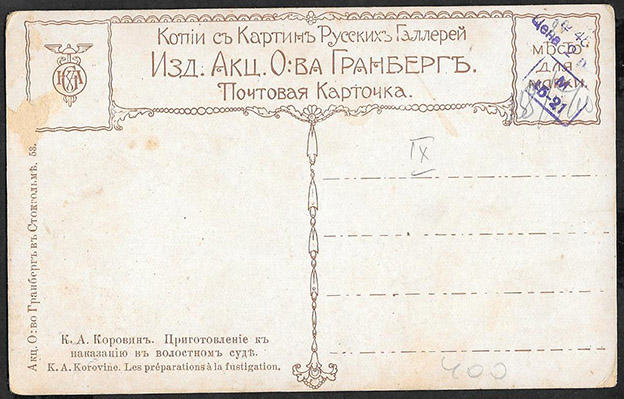 Копіи съ Картинъ Русскихъ Галлерей
Изд. Акц. О:ва Гранбергъ.
Почтовая Карточка.
Мѣсто
для
марки.
Цена
IX
Акц. О:во Гранбергъ въ Стокгольмѣ. 53.
К. А. Коровинъ. Приготовленіе къ
наказанію въ волостномъ судѣ.
K. A. Korovine. Les préparations à la fustigation.
400